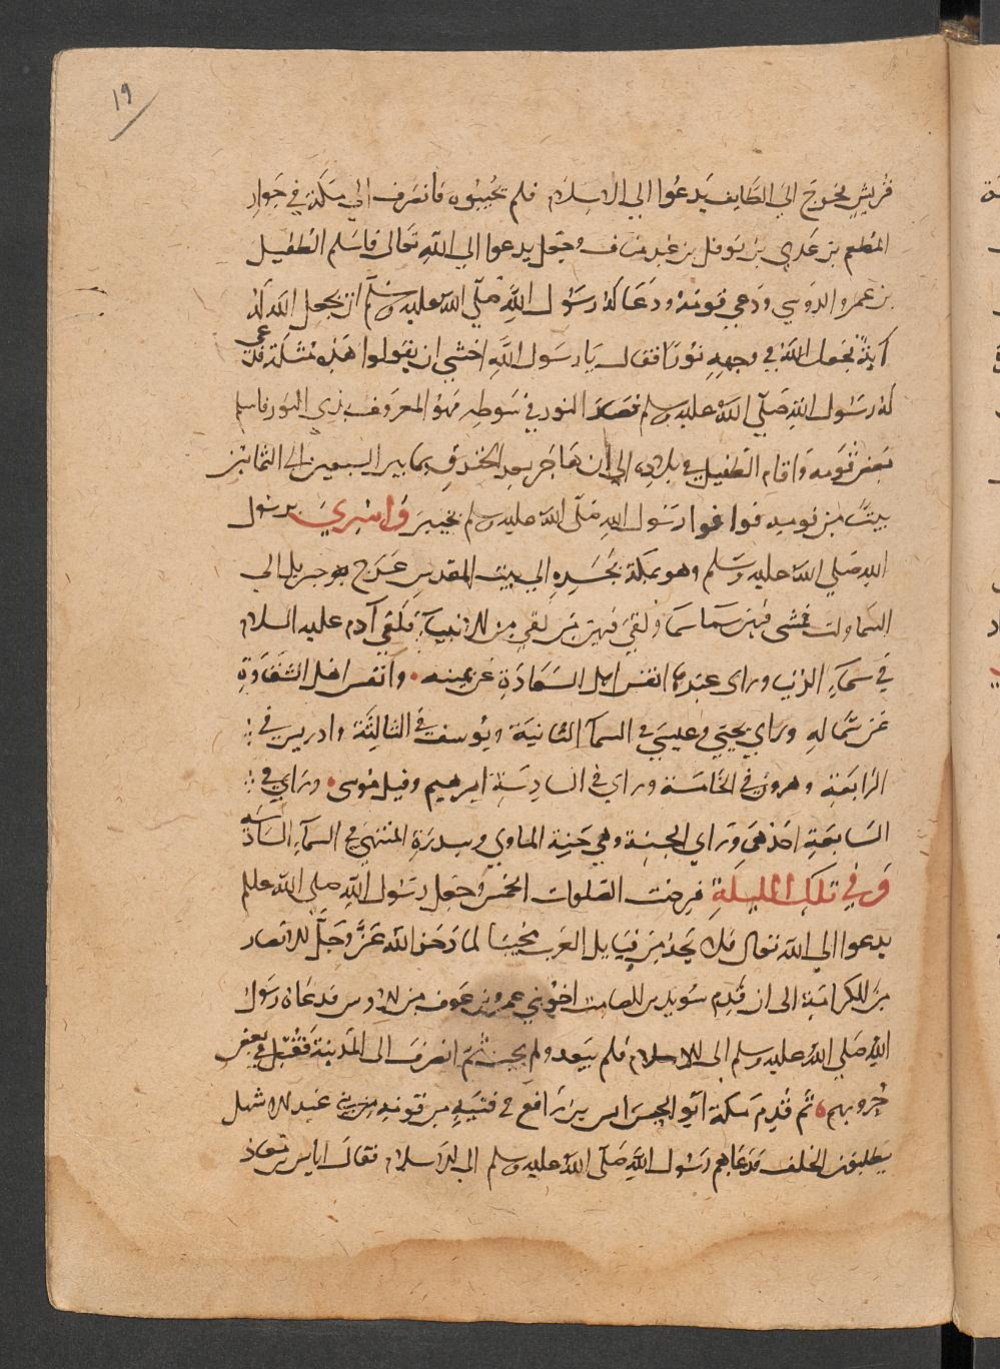 ١٩
قريش فخرج الى الطايف يدعوا الى الاسلام فلم يجيبوه فانصرف الى مكة في جوار
المطعم بن عدي بن نوفل بن عبد مناف وجعل يدعوا الى الله تعالى فاسلم الطفيل
بن عمرو الدوسي ودعى قومه ودعا له رسول الله صلى الله عليه وسلم ان يجعل الله له
آية فجعل الله في وجهه نورا فقال يا رسول الله اخشى ان يقولوا هذه مثلة فدعى
له رسول الله صلى الله عليه وسلم فصار النور في سوطه فهو المعروف بذي النور فاسلم
بعض قومه واقام الطفيل في بلاده الى ان هاجر بعد الخندق بما بين السبعين الى الثمانين
بيتا من قومه فوافوا رسول الله صلى الله عليه وسلم بخيبر واسري برسول
الله صلى الله عليه وسلم وهو بمكة بجسده الى بيت المقدس عرج به جبريل الى
السماوات فمشى فيهن سما سما ولقي فيهن من لقي من الانبياء فلقي آدم عليه السلام
في سماء الدنيا وراى عنده انفس اهل السعادة عن يمينه وانفس اهل الشقاوة
عن شماله وراي يحيى وعيسى في السما الثانية ويوسف في الثالثة وادريس في
الرابعة وهرون في الخامسة وراي في السادسة ابرهيم وقيل موسى وراي في
السابعة احدهما وراي الجنة وهي جنة الماوي وسدرة المنتهى في السماء السادسة
وفي تلك الليلة فرضت الصلوات الخمس وجعل رسول الله صلى الله علم
يدعوا الى الله تعالى فلا يجد من قبايل العرب مجيبا لما ذخر الله عز وجل للانصار
من الكرامة الى ان قدم سويد بن الصامت اخو بني عمرو بن عوف من الاوس فدعاه رسول
الله صلى الله عليه وسلم الى الاسلام فلم يبعد ولم يجب ثم انصرف الى المدينة فقتل في بعض
حروبهم ثم قدم مكة ابو الحيسر انس بن رافع في فتية من قومه من بني عبد الاشهل
يطلبون الحلف فدعاهم رسول الله صلى الله عليه وسلم الى الاسلام فقال اياس بن معاذ